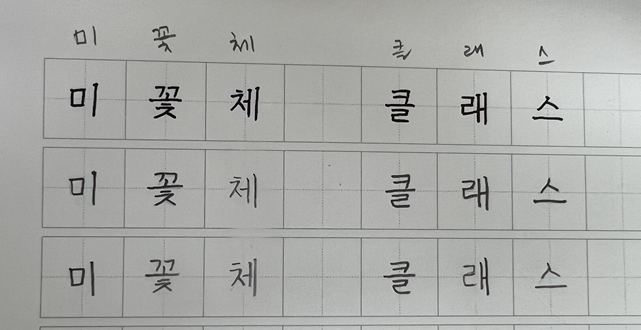 미꽃체 클래스
미꽃체 클래스
미꽃체 클래스
미꽃체 클래스